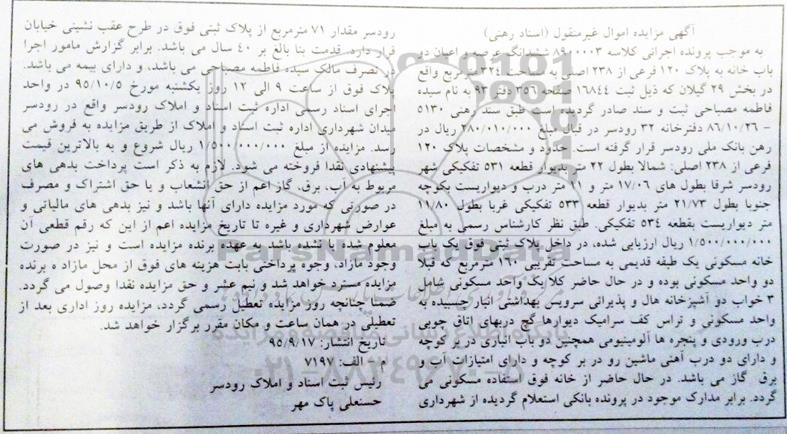 آگهی مزایده اموال غیرمنقول (اسناد رهنی)
به موجب پرونده اجرائی کلاسه ۸۹۰۰۰۰۳ ششدانگ عرصه و اعیان دو
باب خانه به پلاک ۱۲۰ فرعی از ۲۳۸ اصلی به مساحت ۳۲۴ مترمربع واقع
در بخش ۲۹ گیلان که ذیل ثبت ۱۶۸۴۴ صفحه ۳۵۶ دفتر ۹۳ به نام سیده
فاطمه مصباحی ثبت و سند صادر گردیده است طبق سند رهنی ۵۱۳۰
- ۸۶/۱۰/۲۶ دفترخانه ۳۲ رودسر در قبال مبلغ ۲۸۰/۰۱۰/۰۰۰ ریال در
رهن بانک ملی رودسر قرار گرفته است. حدود و مشخصات پلاک ۱۲۰
فرعی از ۲۳۸ اصلی: شمالا بطول ۲۲ متر بدیوار قطعه ۵۳۱ تفکیکی شهر
رودسر شرقا بطول های ۱۷/۰۶ متر و ۲۱ متر درب و دیواریست بکوچه
جنوبا بطول ۲۱/۷۳ متر بدیوار قطعه ۵۳۳ تفکیکی غربا بطول ۱۱/۸۰
متر دیواریست بقطعه ۵۳۴ تفکیکی. طبق نظر کارشناس رسمی به مبلغ
۱/۵۰۰/۰۰۰/۰۰۰ ریال ارزیابی شده، در داخل پلاک ثبتی فوق یک باب
خانه مسکونی یک طبقه قدیمی به مساحت تقریبی ۱۶۰ مترمربع که قبلا
دو واحد مسکونی بوده و در حال حاضر کلا یک واحد مسکونی شامل
۳ خواب دو آشپزخانه هال و پذیرائی سرویس بهداشتی انبار چسبیده به
واحد مسکونی و تراس کف سرامیک دیوارها گچ دربهای اتاق چوبی
درب ورودی و پنجره ها آلومینیومی همچنین دو باب انباری در بر کوچه
و دارای دو درب آهنی ماشین رو در بر کوچه و دارای امتیازات آب و
برق گاز می باشد. در حال حاضر از خانه فوق استفاده مسکونی می
گردد. برابر مدارک موجود در پرونده بانکی استعلام گردیده از شهرداری
رودسر مقدار ۷۱ مترمربع از پلاک ثبتی فوق در طرح عقب نشینی خیابان
قرار دارد. قدمت بنا بالغ بر ۴۰ سال می باشد. برابر گزارش مامور اجرا
در تصرف مالک سیده فاطمه مصباحی می باشد، و دارای بیمه می باشد.
پلاک فوق از ساعت ۹ الی ۱۲ روز یکشنبه مورخ ۹۵/۱۰/۵ در واحد
اجرای اسناد رسمی اداره ثبت اسناد و املاک رودسر واقع در رودسر
میدان شهرداری اداره ثبت اسناد و املاک از طریق مزایده به فروش می
رسد. مزایده از مبلغ ۱/۵۰۰/۰۰۰/۰۰۰ ریال شروع و به بالاترین قیمت
پیشنهادی نقدا فروخته می شود. لازم به ذکر است پرداخت بدهی های
مربوط به آب، برق، گاز اعم از حق انشعاب و یا حق اشتراک و مصرف
در صورتی که مورد مزایده دارای آنها باشد و نیز بدهی های مالیاتی و
عوارض شهرداری و غیره تا تاریخ مزایده اعم از این که رقم قطعی آن
معلوم شده یا نشده باشد به عهده برنده مزایده است و نیز در صورت
وجود مازاد، وجوه پرداختی بابت هزینه های فوق از محل مازاد ه برنده
مزایده مسترد خواهد شد و نیم عشر و حق مزایده نقدا وصول می گردد.
ضمنا چنانچه روز مزایده تعطیل رسمی گردد، مزایده روز اداری بعد از
تعطیلی در همان ساعت و مکان مقرر برگزار خواهد شد.
تاریخ انتشار: ۹۵/۹/۱۷
م - الف: ۷۱۹۷
رئیس ثبت اسناد و املاک رودسر
حسنعلی پاک مهر
ParsNamadData
۰۲۱-۸۸۳۴۹۶۷۰-۵